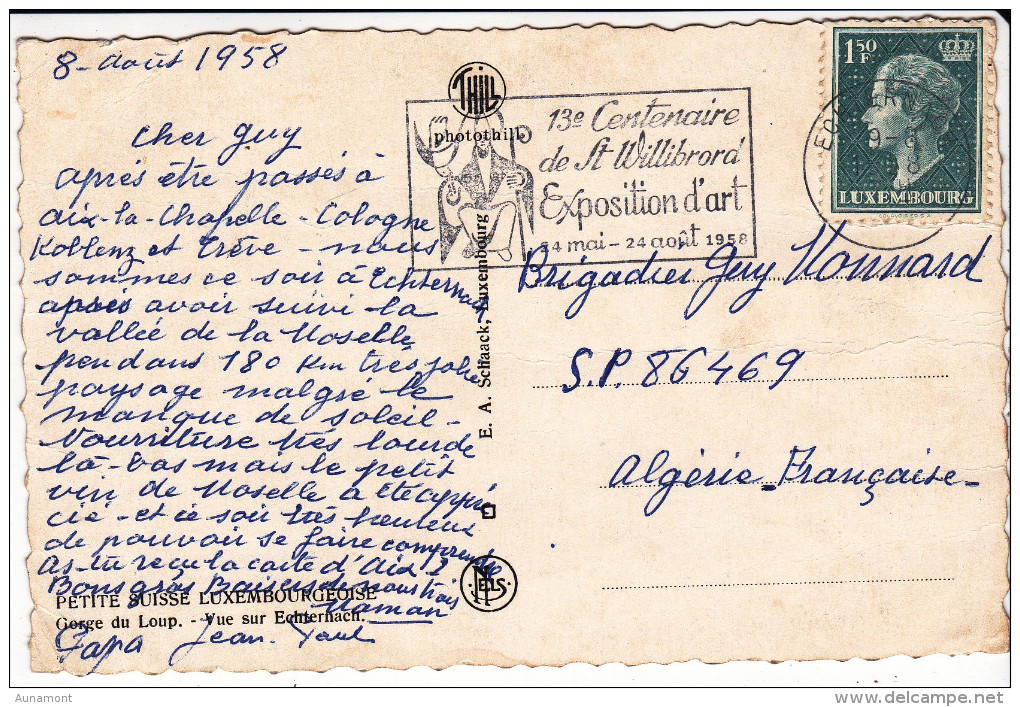 8 - août 1958
Cher Guy
après être passés à
Aix-la-Chapelle - Cologne
Koblenz et Trève - nous
sommes ce soir à Echternach
après avoir suivi la
vallée de la Moselle
pendans 180 Km très jolie
paysage malgré le
manque de soleil -
Nourriture très lourde
là-bas mais le petit
vin de Moselle a été appré
cié - et ce soir très heureux
de pouvoir se faire comprendre
As-tu reçu la carte d'Aix ?
Bons gros Baisers de nous trois
Maman
Papa Jean-Paul
PETITE SUISSE LUXEMBOURGEOISE
Gorge du Loup. - Vue sur Echternach.
THILL
photothill
E. A. Schaack, Luxembourg
NELS
13e Centenaire
de St Willibrord
Exposition d'art
24 mai - 24 août 1958
1.50
F.
LUXEMBOURG
Brigadier Guy Monnard
S.P. 86469
Algérie-Française-
Aunamont
delcampe.net